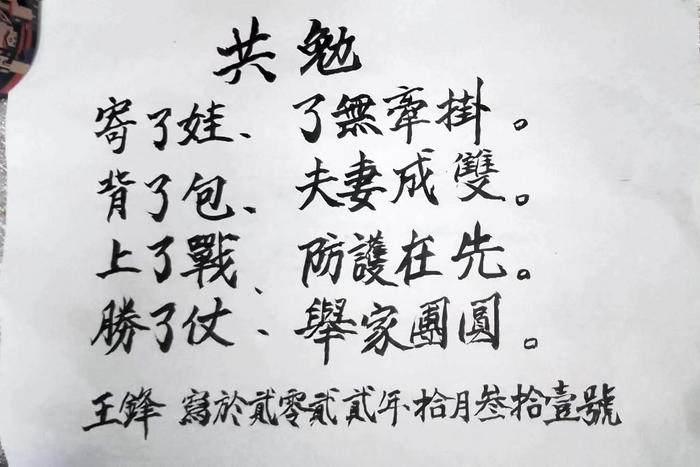 共勉
寄了娃、了無牽掛。
背了包、夫妻成雙。
上了戰、防護在先。
勝了仗、舉家團圓。
王鋒 寫於貳零貳貳年拾月叁拾壹號